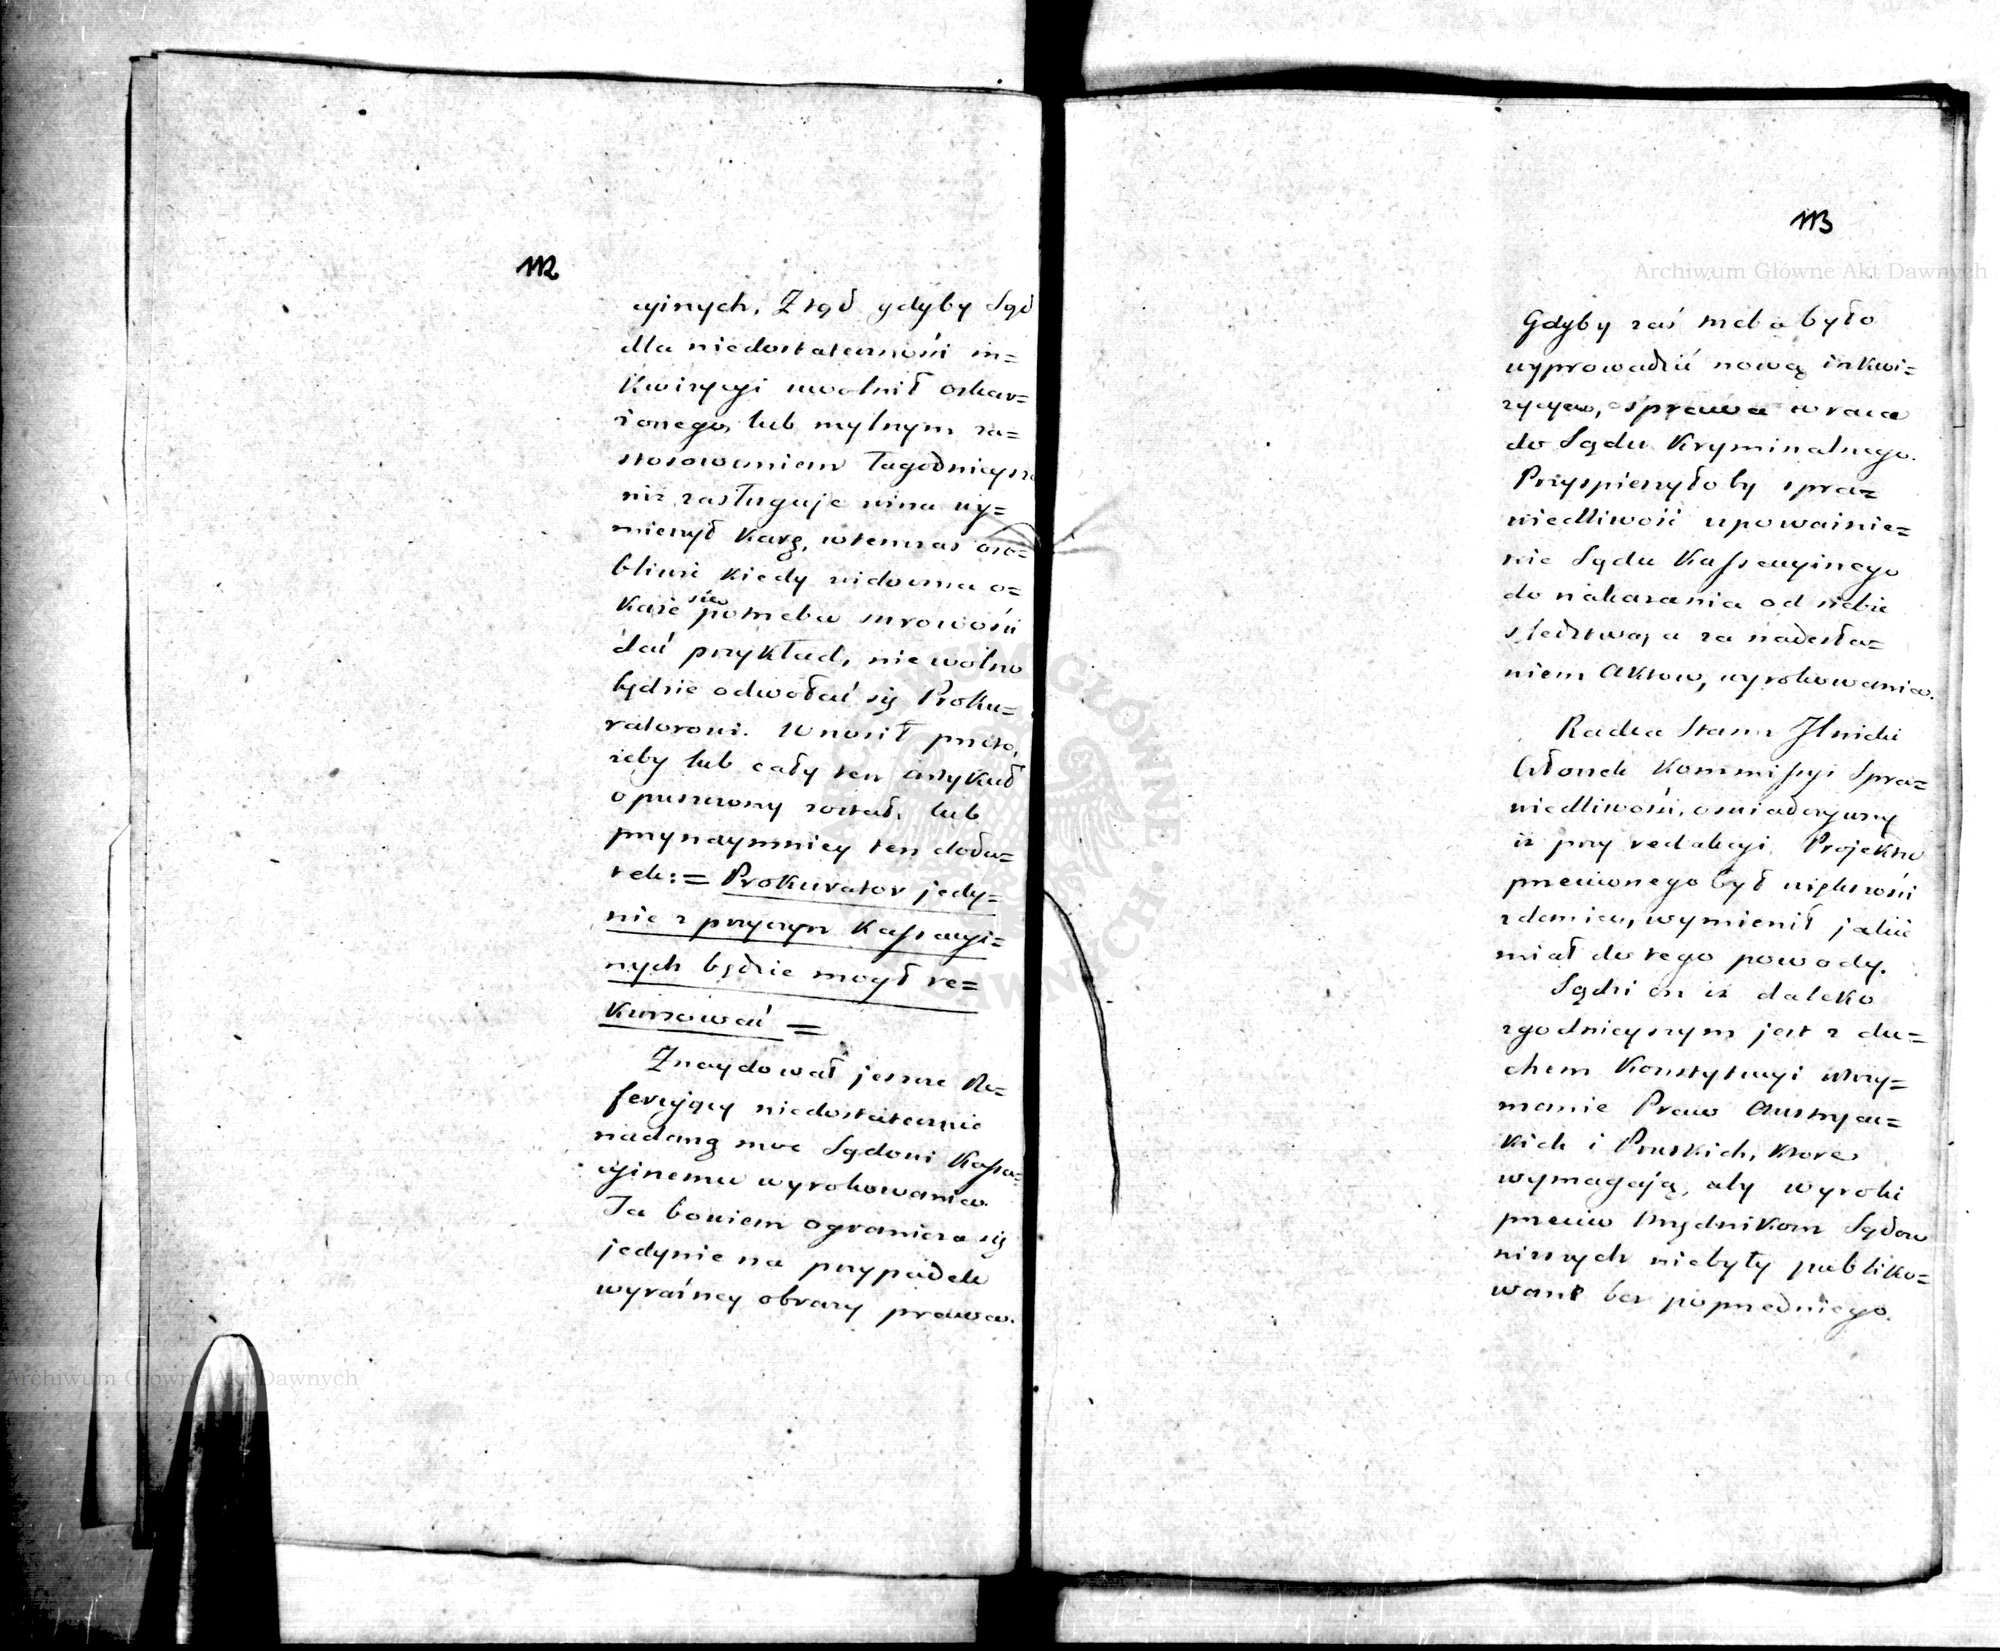 112
cyinych, Ztąd gdyby Sąd
dla niedostateczności in=
kwizycyi uwolnił oskar=
żonego, lub mylnym za=
stosowaniem łagodnieysz
niż zasługuje wina wy=
mierzył karę, wtenczas oso=
bliwie kiedy widoczna o=
każe się potrzeba surowości
dać przykład, nie wolno
będzie odwołać się Proku=
ratorowi. Wnosił przeto,
żeby lub cały ten artykuł
opuszczony został, lub
przynaymniey ten doda=
tek: = Prokurator jedy=
nie z przyczyn Kassacyi=
nych będzie mogł re=
kurzować =
Znaydował jeszcze Re=
ferujący niedostatecznie
nadaną moc Sądowi Kassa=
cyinemu wyrokowania.
Ta bowiem ogranicza się
jedynie na przypadek
wyraźney obrazy prawa.
113
Archiwum Główne Akt Dawnych
Gdyby zaś trzeba było
wyprowadzić nową inkwi=
zycyą, sprawa wraca
do Sądu Kryminalnego.
Przyspieszyłoby spra=
wiedliwość upoważnie=
nie Sądu Kassacyinego
do nakazania od siebie
śledztwa, a za nadesła=
niem Aktow, wyrokowania.
Radca Stanu Ilnicki
Członek Kommissyi Spra=
wiedliwości, oświadczywszy
iż przy redakcyi Projektu
przeciwnego był większości
zdania, wymienił jakie
miał do tego powody.
Sądzi on iż daleko
zgodnieyszym jest z du=
chem Konstytucyi utrzy=
manie Praw Austryac=
kich i Pruskich, ktore
wymagają, aby wyroki
przeciw Urzędnikom Sądow
niższych niebyły publiko=
wane bez poprzedniego
Archiwum Główne Akt Dawnych
ARCHIWUM GŁÓWNE AKT DAWNYCH